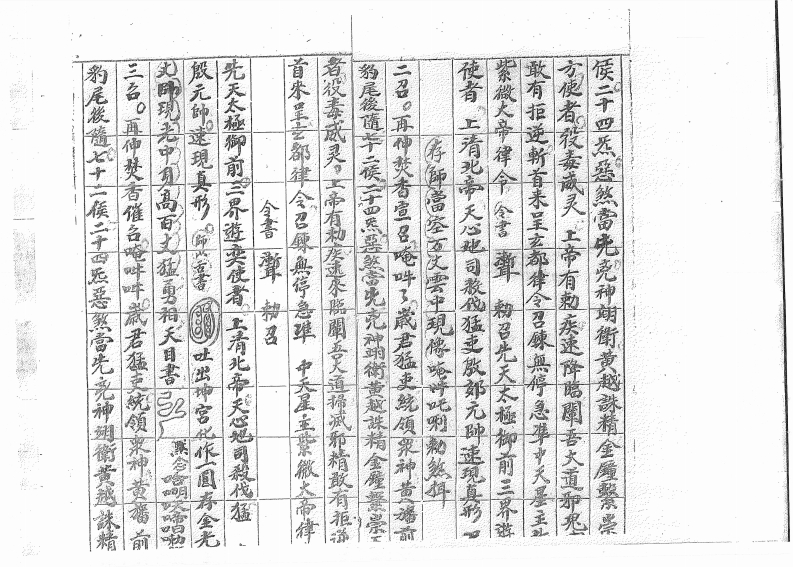 候二十四炁惡煞當先亮神翊衛黃越誅精金鐘繫崇
方使者役毒威灵 上帝有勅疾速降臨闡吾大道邪鬼
敢有拒逆斬首來呈玄都律令召鍊無停急准中天星主
紫微大帝律令 令書 勅召先天太極御前三界遊
使者 上清北帝天心地司殺伐猛吏殷郊元帥速現真形
存師當空百丈雲中現像唵吽吒唎勅煞摂
二召。再伸焚香宣召唵吽々歲君猛吏統領衆神黃旛前
豹尾後隨七十二候二十四炁惡煞當先亮神翊衛黃越誅精金鐘繫崇
者役毒威灵。上帝有勅疾速來臨闡吾大道掃滅邪精敢有拒逆
首來呈玄都律令召鍊無停急準 中天星主紫微大帝律
令書 勅召
先天太極御前三界遊奕使者 上清北帝天心地司殺伐猛
殷元帥速現真形。師以舌書 吐出坤宮化作一圓存金光
丈師現光中月高百丈猛勇相天目書 黙念
三召。再伸焚香催召唵吽吽歲君猛吏統領衆神黃旛前
豹尾後隨七十二候二十四炁惡煞當先亮神翊衛黃越誅精